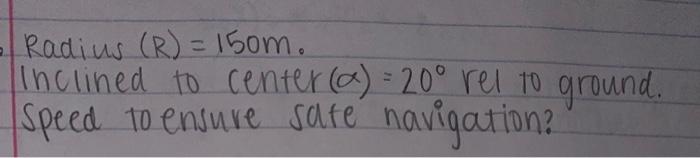 Radius (R) = 150m.
Inclined to center (α) = 20° rel to ground.
Speed to ensure safe navigation?